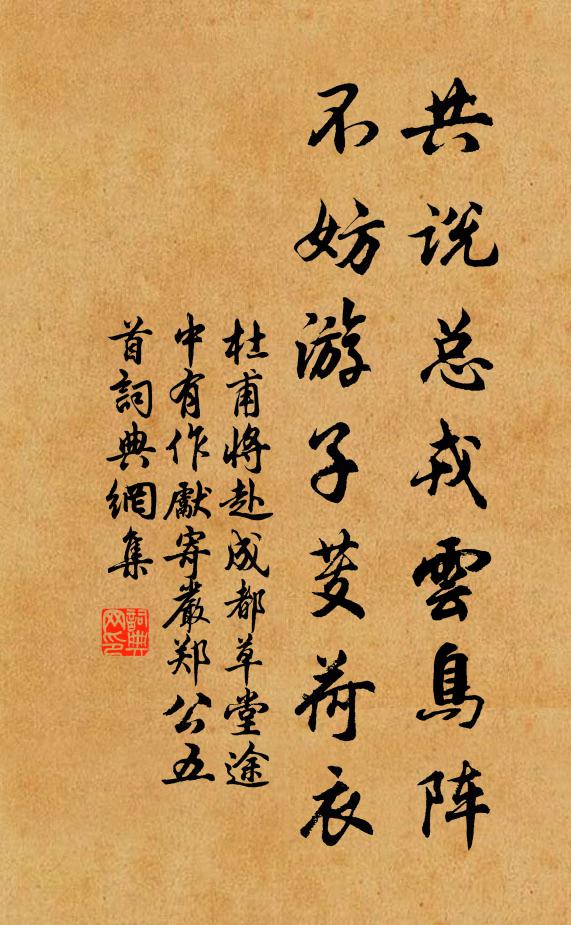 共说总戎雲鳥阵
不妨游子芰荷衣
杜甫將赴成都草堂途
中有作獻寄嚴郑公五
首詞典網集
詞典
网印